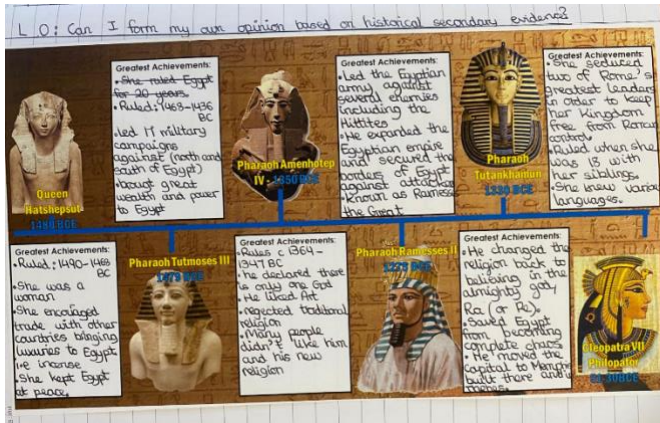 L O: Can I form my own opinion based on historical secondary evidence?
Greatest Achievements:
• She ruled Egypt
for 20 years.
• Ruled: 1468-1436
BC
• Led 17 military
campaigns
against (north and
south of Egypt)
• brought great
wealth and power
to Egypt
Queen
Hatshepsut
1488 BCE
Pharaoh Amenhotep
IV - 1350 BCE
Greatest Achievements:
• Led the Egyptian
army against
several enemies
including the
Hittites
• He expanded the
Egyptian empire
and secured the
borders of Egypt
against attackers
• Known as Ramesses
the Great
Pharaoh
Tutankhamun
1330 BCE
Greatest Achievements:
• She seduced
two of Rome's
greatest leaders
in order to keep
her kingdom
free from Roman
control
• Ruled when she
was 18 with
her siblings.
• She knew various
languages.
Greatest Achievements:
• Ruled: 1490-1468
BC
• She was a
woman
• She encouraged
trade with other
countries bringing
luxuries to Egypt
i.e incense
• She kept Egypt
at peace.
Pharaoh Tutmoses III
1479 BCE
Greatest Achievements:
• Rules c 1369-
1347 BC
• he declared there
is only one God
• He liked Art
• rejected traditional
religion
• Many people
didn't like him
and his new
religion
Pharaoh Ramesses II
1279 BCE
Greatest Achievements:
• He changed the
religion back to
believing in the
almighty god,
Ra (or Re).
• Saved Egypt
from becoming
complete chaos
• He moved the
capital to Memphis
built there and in
Thebes.
Cleopatra VII
Philopator
51-30BCE